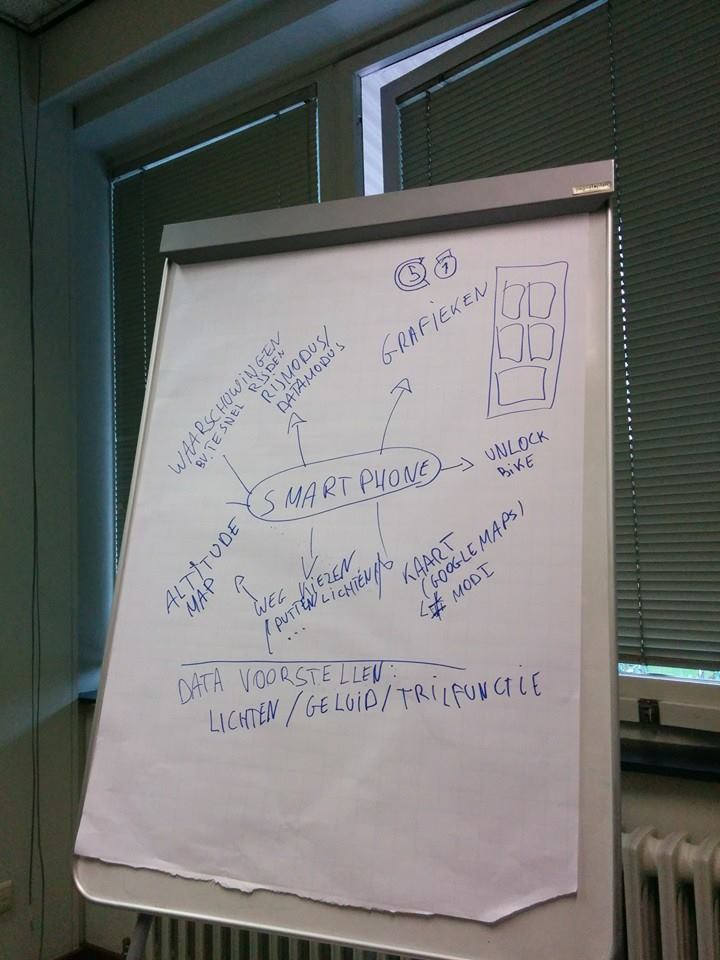 5 1
GRAFIEKEN
WAARSCHOWINGEN
BV. TE SNEL RIJDEN
RIJMODUS/
DATAMODUS
SMARTPHONE
UNLOCK
BIKE
ALTITUDE
MAP
WEG KIEZEN
(PUTTEN LICHTEN
...
KAART
(GOOGLE MAPS)
MODI
DATA VOORSTELLEN:
LICHTEN / GELUID / TRILFUNCTIE